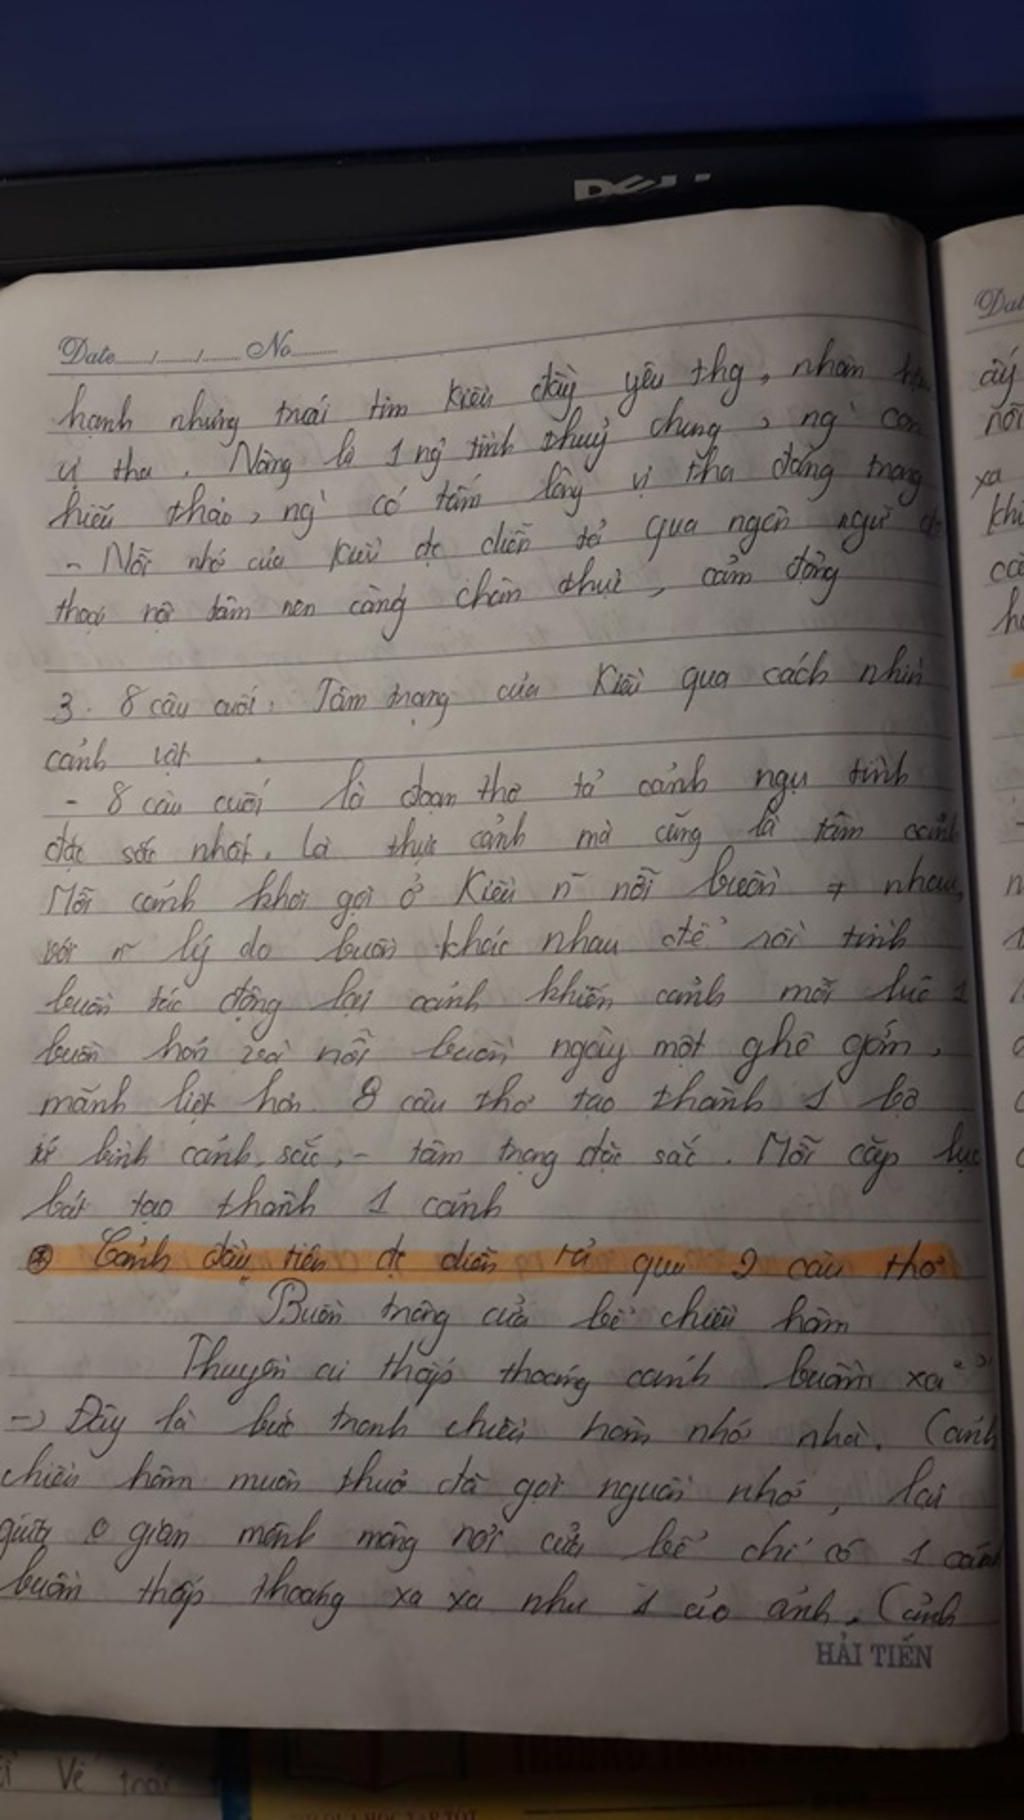 DELL
Date...../...../...... No...........
hạnh nhưng trái tim Kiều đầy yêu thg, nhân
vị tha. Nàng là 1 ng tình thuỷ chung, ng con
hiếu thảo, ng có tấm lòng vị tha đáng trọng
- Nỗi nhớ của Kiều đc diễn tả qua ngôn ngữ
thoại nội tâm nên càng chân thực, cảm động
3. 8 câu cuối: Tâm trạng của Kiều qua cách nhìn
cảnh vật.
- 8 câu cuối là đoạn thơ tả cảnh ngụ tình
đặc sắc nhất. Là thực cảnh mà cũng là tâm cảnh
Mỗi cảnh khơi gợi ở Kiều n~ nỗi buồn ≠ nhau,
với n~ lý do buồn khác nhau để rồi tình
buồn tác động lại cảnh khiến cảnh mỗi lúc 1
buồn hơn và nỗi buồn ngày một ghê gớm,
mãnh liệt hơn. 8 câu thơ tạo thành 1 bộ
tứ bình cảnh sắc, - tâm trạng đặc sắc. Mỗi cặp lục
bát tạo thành 1 cảnh
* Cảnh đầu tiên đc diễn tả qua 2 câu thơ
"Buồn trông cửa bể chiều hôm
Thuyền ai thấp thoáng cánh buồm xa xa"
-> Đây là bức tranh chiều hôm nhớ nhà. Cảnh
chiều hôm muôn thuở đã gợi nguồn nhớ, lại
giữa o gian mênh mông nơi cửa bể chỉ có 1 cánh
buồm thấp thoáng xa xa như 1 ảo ảnh. Cảnh
HẢI TIẾN
Dat
ấy
nỗi
xa
khi
Vẽ trái